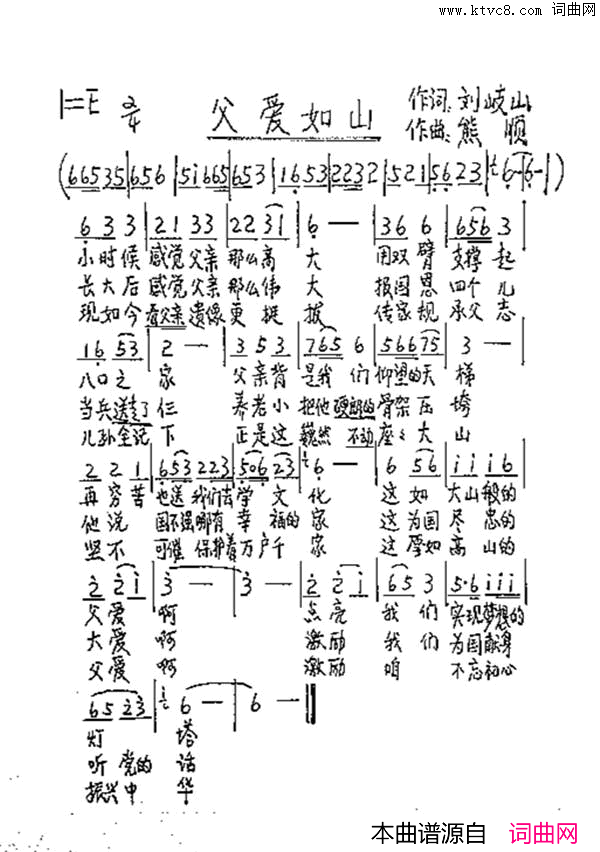 www.ktvc8.com 词曲网
1=E 2/4 父爱如山 作词:刘岐山
作曲:熊顺
(66535|656|51665|653|1653|2232|521|5623|6-|6-|)
6 3 3|21 33|22 31|6 - -|36 6|656 3
小时候 感觉父亲 那么高 大 用双臂 支撑起
长大后 感觉父亲 那么伟 大 报国恩 四个儿
现如今 看父亲遗像 更挺 拔 传家规 承父志
16 53|2 -|3 5 3|765 6|566 75|3 -|
八口之 家 父亲背 是我们 仰望的天 梯
当兵送走了 仨 养老小 把他硬朗的 骨架压 垮
儿孙全记 下 正是这 巍然不动 座々大 山
2 2 1|653 223|5·06 23|6 -|6 56|i i i 6
再穷苦 也送我们去学文 化 这如 大山般的
他说 国不强哪有幸福的 家 这为国 尽忠的
坚不 可摧 保护着万户千 家 这譬如 高山的
2 2i|3 -|3 -|2 2i|65 3|5·6 iii|
父爱 啊 点亮 我们 实现梦想的
大爱 啊 激励 我们 为国献身
父爱 啊 激励 咱 不忘初心
65 23|6 -|6 -‖
灯 塔
听党的 话
振兴中 华
本曲谱源自 词曲网